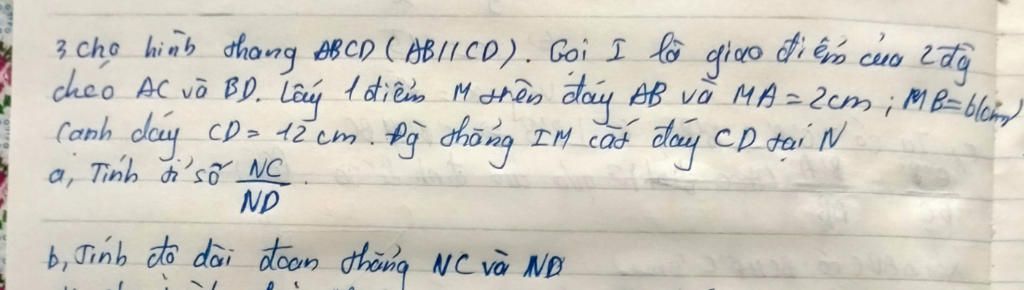 3 Cho hình thang ABCD (AB//CD). Gọi I là giao điểm của 2 đg
chéo AC và BD. Lấy 1 điểm M trên đáy AB và MA = 2cm ; MB = 6(cm)
Cạnh đáy CD = 12 cm. Đg thẳng IM cắt đáy CD tại N
a, Tính tỉ số NC/ND.
b, Tính độ dài đoạn thẳng NC và ND